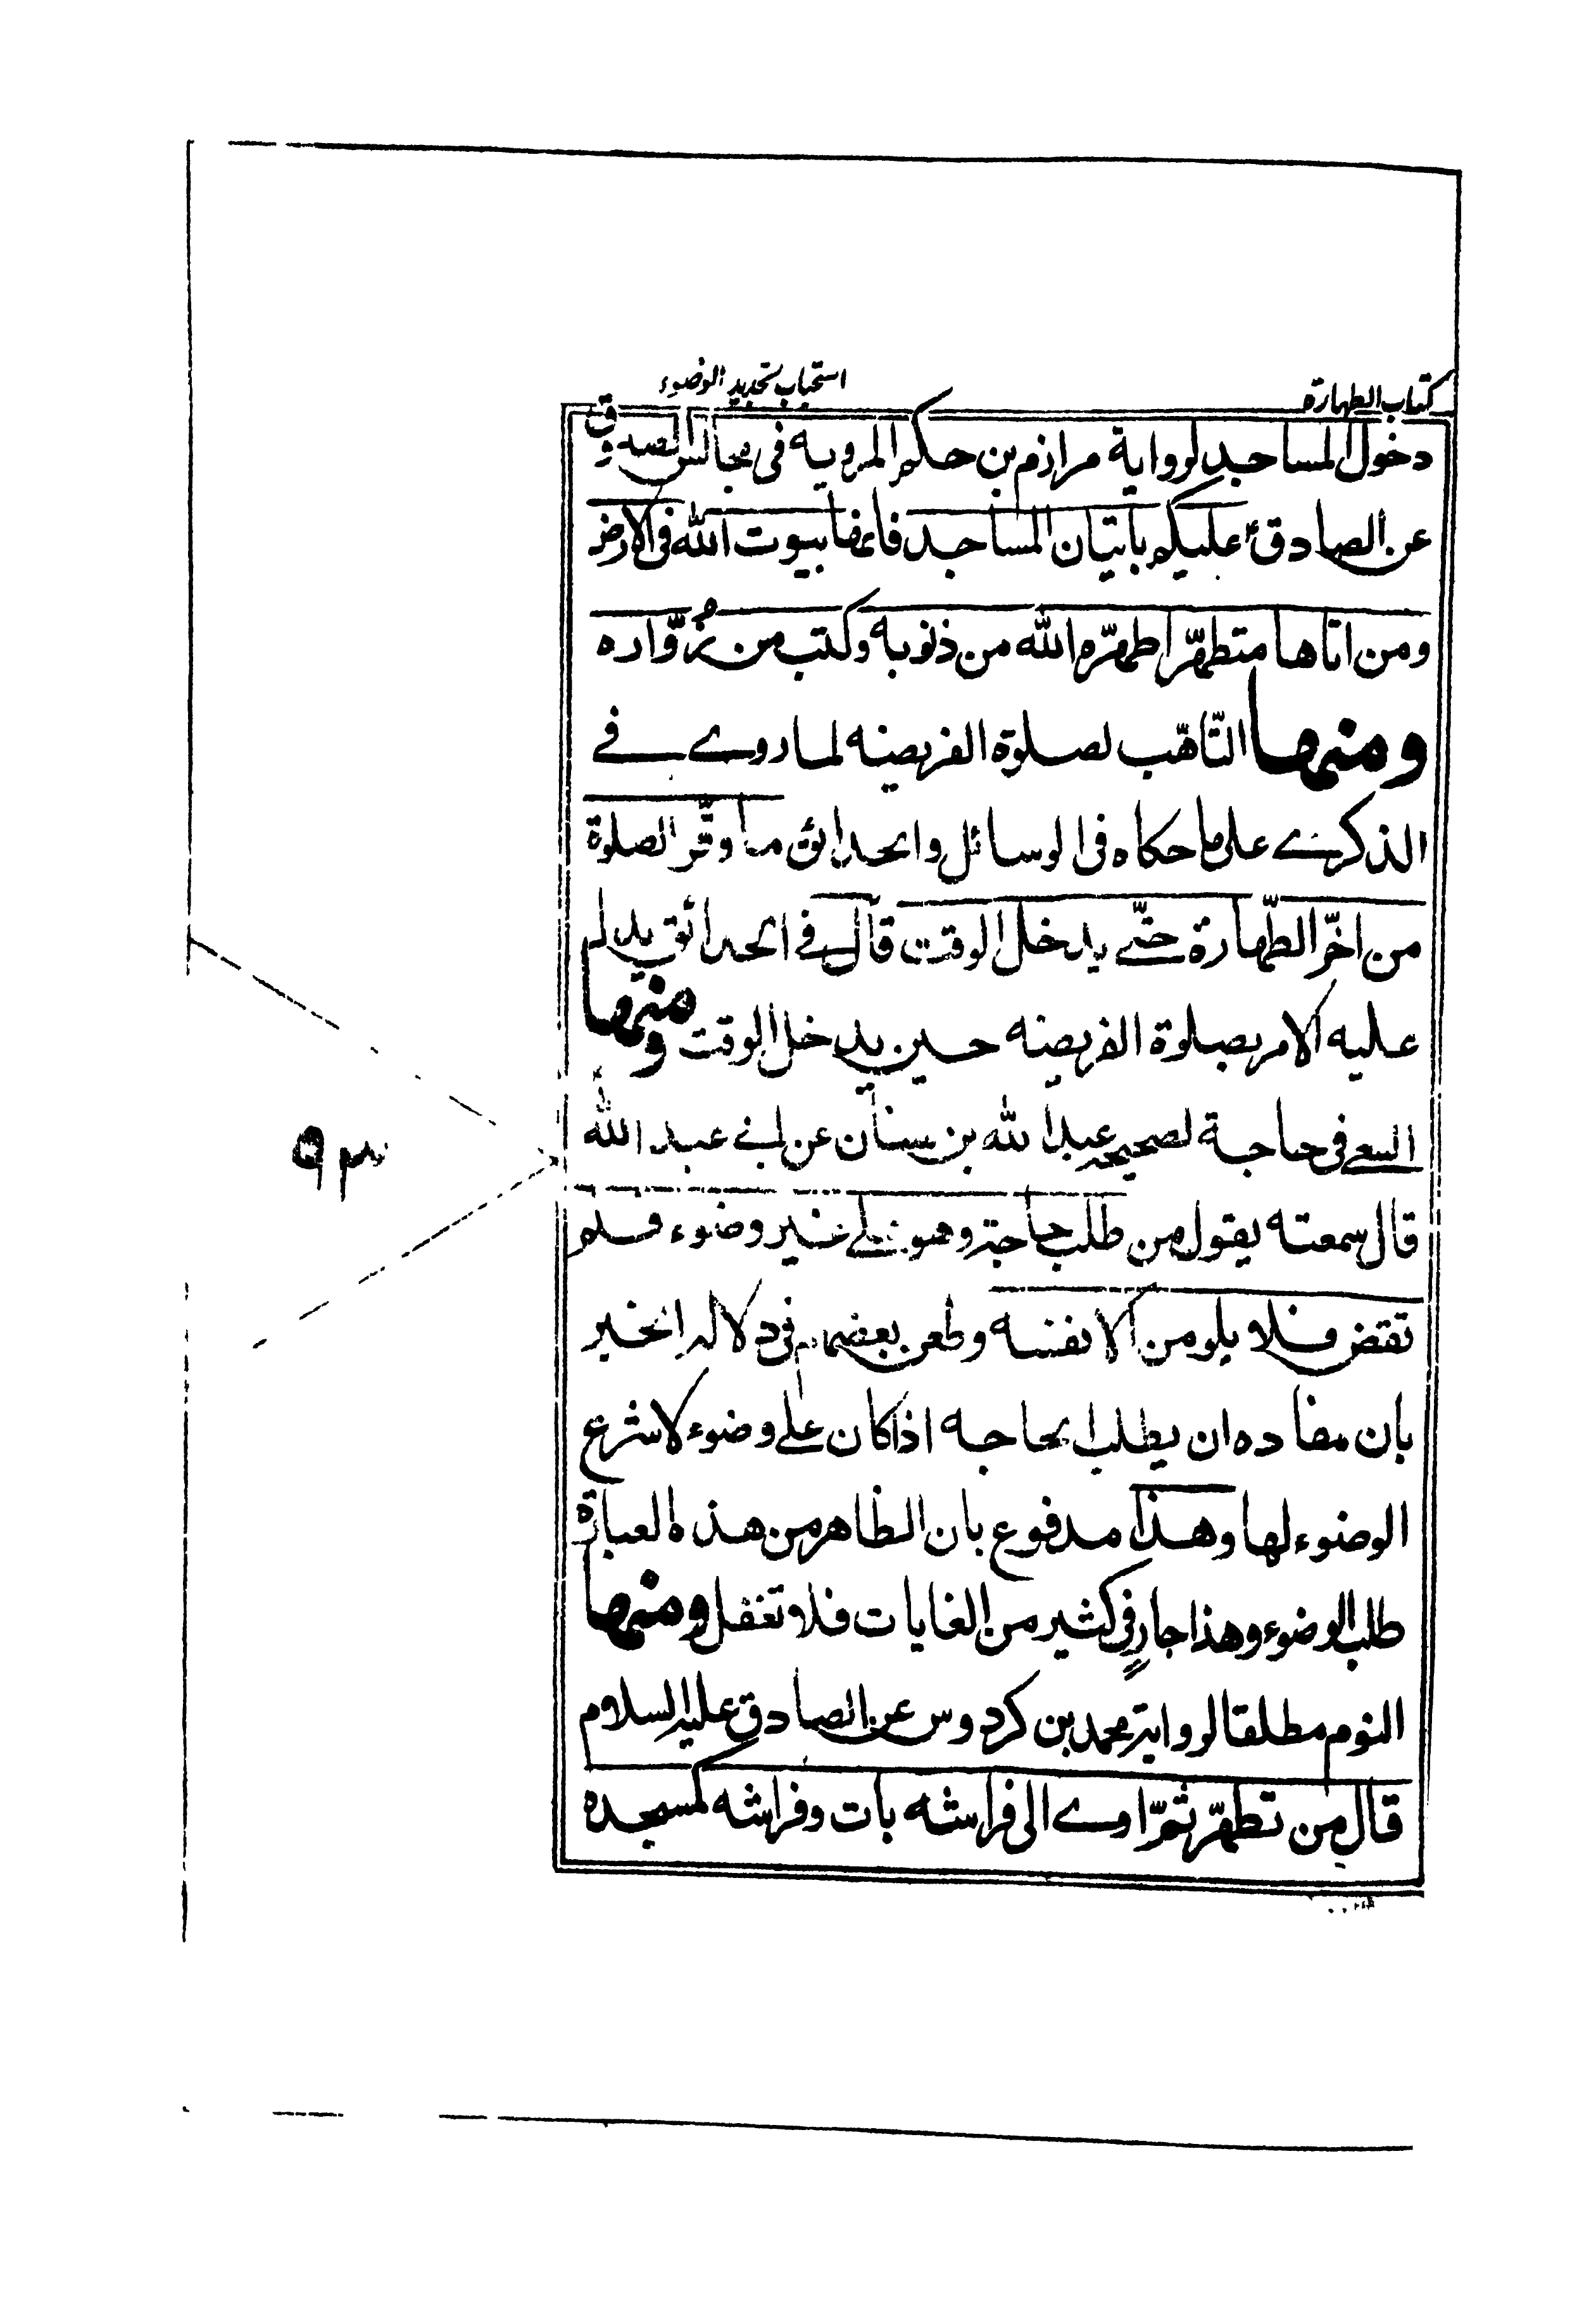 كتاب الطهارة
استحباب تجديد الوضوء
دخول المساجد لرواية مرازم بن حكيم المرويه فى مجالس الصدوق
عن الصادق ع عليكم باتيان المساجد فانها بيوت الله فى الارض
ومن اتاها متطهّرا طهّره الله من ذنوبه وكتب من زُوّاره
ومنها التّاهّب لصلوة الفريضه لما روے فے
الذكرے على ما حكاه فى الوسائل والحدائق ما وقّر الصلوة
من اخّر الطّهارة حتّے يدخل الوقت قال فے الحدائق يدل
عليه الامر بصلوة الفريضه حين يدخل الوقت ومنها
السعے فى حاجة لصحيحه عبد الله بن سنان عن ابے عبد الله
قال سمعته يقول من طلب حاجة وهو علے غير وضوء فلم
تقتض فلا يلومن الا نفسه وطعن بعضهم فى دلالة الخبر
بان مفاده ان يطلب الحاجه اذا كان علے وضوء لا شرع
الوضوء لها وهذا مدفوع بان الظاهر من هذه العبارة
طلب الوضوء وهذا جارٍ فى كثير من الغايات فلا تغفل ومنها
النوم مطلقا لرواية محمد بن كردوس عن الصادق عليه السلام
قال من تطهّر ثمّ اوے الى فراشه بات وفراشه كمسجده
٩٣